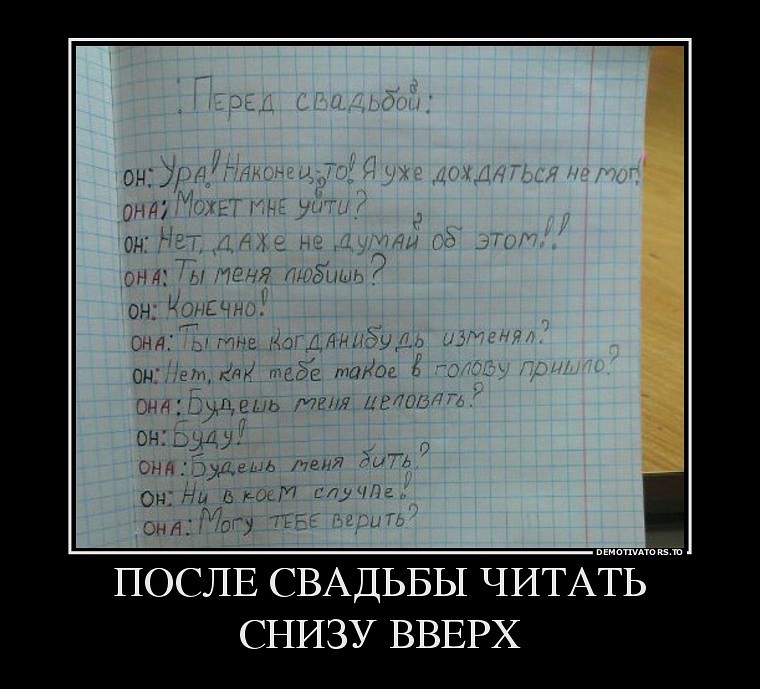 Перед свадьбой:
он: Ура! Наконец-то! Я уже дождаться не мог!
она: Может мне уйти?
он: Нет, даже не думай об этом!!
она: Ты меня любишь?
он: Конечно!
она: Ты мне когданибудь изменял?
он: Нет, как тебе такое в голову пришло?
она: Будешь меня целовать?
он: Буду!
она: Будешь меня бить?
он: Ни в коем случае!
она: Могу тебе верить?
DEMOTIVATORS.TO
ПОСЛЕ СВАДЬБЫ ЧИТАТЬ
СНИЗУ ВВЕРХ